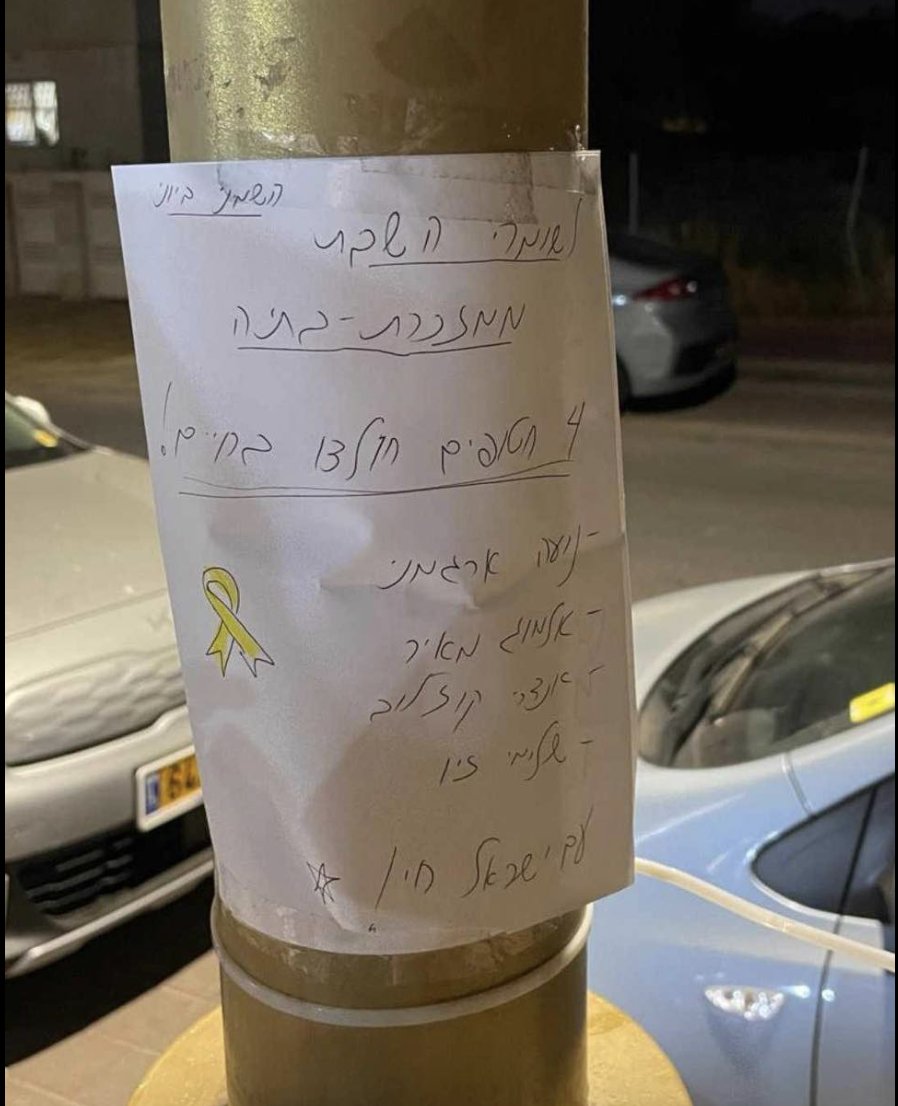 השמיני ביוני
לשומרי השבת
ממזכרת-בתיה
4 חטופים חולצו בחיים!
-נועה ארגמני
- אלמוג מאיר
- אנדרי קוזלוב
- שלומי זיו
עם ישראל חי!
64